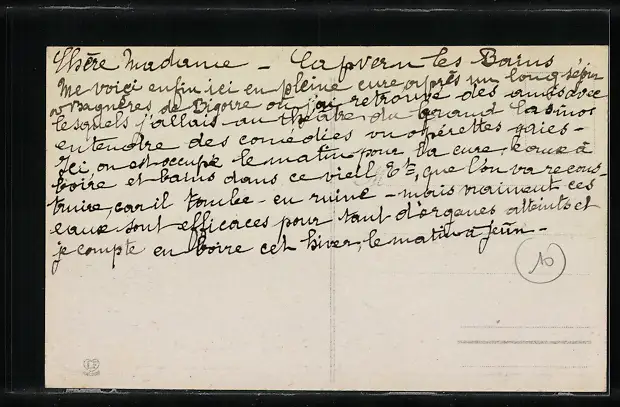 Chère Madame - Capvern les Bains
Me voici enfin ici en pleine cure, après un long séjour
à Bagnères de Bigorre où j'ai retrouvé des amis avec
lesquels j'allais au théâtre du grand Casino
entendre des comédies ou opérettes gaies -
Ici, on est occupé le matin pour la cure, eaux à
boire et bains dans ce vieil Ets, que l'on va recons-
truire, car il tombe - en ruine - mais vraiment ces
eaux sont efficaces pour tant d'organes atteints et
je compte en boire cet hiver, le matin à jeûn -
10